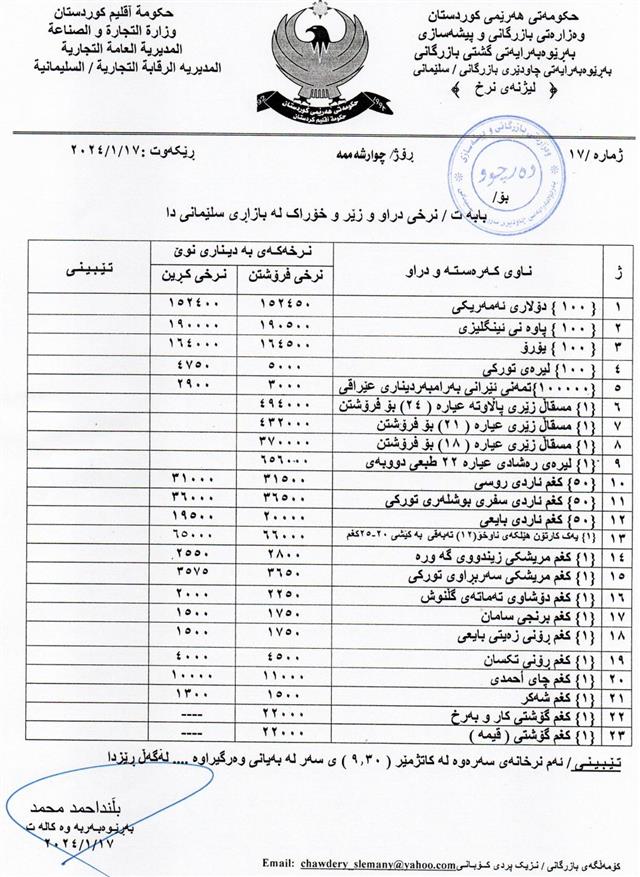 حکومەتی هەرێمی کوردستان
وەزارەتی بازرگانی و پیشەسازی
بەڕێوەبەرایەتی گشتی بازرگانی
بەڕێوەبەرایەتی چاودێری بازرگانی / سلێمانی
﴿ لیژنەی نرخ ﴾
حكومة أقليم كوردستان
وزارة التجارة و الصناعة
المديرية العامة التجارية
المديريه الرقابة التجارية / السليمانية
حکومەتی هەرێمی کوردستان
حكومة أقليم كردستان
ژمارە /١٧
ڕۆژ/ چوارشەممە
ڕێکەوت :٢٠٢٤/١/١٧
دەرچوو
بۆ/
بابە ت / نرخی دراو و زێر و خۆراک لە بازاڕی سلێمانی دا
ژ ناوی کەرەستە و دراو نرخەکەی بە دیناری نوێ تێبینی
نرخی فرۆشتن نرخی کڕین
١ {١٠٠} دۆلاری ئەمەریکی ١٥٢٤٥٠ ١٥٢٤٠٠
٢ {١٠٠} پاوە نی ئینگلیزی ١٩٠٥٠٠ ١٩٠٠٠٠
٣ {١٠٠} یۆرۆ ١٦٤٥٠٠ ١٦٤٠٠٠
٤ {١٠٠} لیرەی تورکی ٥٠٠٠ ٤٧٥٠
٥ {١٠٠٠٠٠}تمەنی ئێرانی بەرامبەردیناری عێراقی ٣٠٠٠ ٢٩٠٠
٦ {١} مسقاڵ زێری پاڵاوتە عیارە ( ٢٤ ) بۆ فرۆشتن ٤٩٤٠٠٠
٧ {١} مسقاڵ زێری عیارە ( ٢١ ) بۆ فرۆشتن ٤٣٢٠٠٠
٨ {١} مسقاڵ زێری عیارە ( ١٨ ) بۆ فرۆشتن ٣٧٠٠٠٠
٩ {١} لیرەی رەشادی عیارە ٢٢ طبعی دووبەی ٦٥٦٠٠٠
١٠ {٥٠} کغم ئاردی روسی ٣١٥٠٠ ٣١٠٠٠
١١ {٥٠} کغم ئاردی سفری بوشلەری تورکی ٣٦٥٠٠ ٣٦٠٠٠
١٢ {٥٠} کغم ئاردی بایعی ٢٠٠٠٠ ١٩٥٠٠
١٣ {١} یەک کارتۆن هێلکەی ناوخۆ(١٢) تەبەقی بە کێشی ٢٠-٢٥کغم ٦٦٠٠٠ ٦٥٠٠٠
١٤ {١} کغم مریشکی زیندووی گە ورە ٢٨٠٠ ٢٥٥٠
١٥ {١} کغم مریشکی سەربڕاوی تورکی ٣٦٥٠ ٣٥٧٥
١٦ {١} کغم دۆشاوی تەماتەی گڵنوش ٢٢٥٠ ٢٠٠٠
١٧ {١} کغم برنجی سامان ١٧٥٠ ١٥٠٠
١٨ {١} کغم ڕۆنی زەیتی بایعی ١٧٥٠ ١٥٠٠
١٩ {١} کغم ڕۆنی تکسان ٤٥٠٠ ٤٠٠٠
٢٠ {١} کغم چای أحمدی ١١٠٠٠ ١٠٠٠٠
٢١ {١} کغم شەکر ١٥٠٠ ١٣٠٠
٢٢ {١} کغم گۆشتی کار و بەرخ ٢٢٠٠٠ ----
٢٣ {١} کغم گۆشتی ( قیمە ) ٢٢٠٠٠ ----
تێبینی/ ئەم نرخانەی سەرەوە لە کاتژمێر ( ٩,٣٠ ) ی سەر لە بەیانی وەرگیراوە .... لەگەڵ ڕێزدا
بڵنداحمد محمد
بەڕێوەبەربە وە کالە ت
٢٠٢٤/١/١٧
کۆمەڵگەی بازرگانی / نزیک پردی کۆبانی Email: chawdery_slemany@yahoo.com